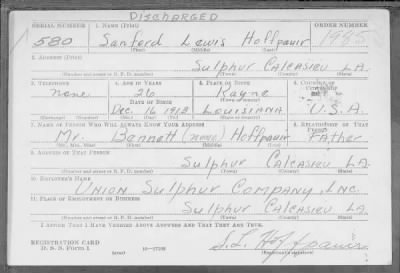 DISCHARGED
SERIAL NUMBER 1. NAME (Print) ORDER NUMBER
580 Sanford Lewis Hoffpauir 1985
2. ADDRESS (Print)
Sulphur Calcasieu LA.
(Number and street or R. F. D. number) (Town) (County) (State)
3. TELEPHONE 4. AGE IN YEARS 5. PLACE OF BIRTH 6. COUNTRY OF CITIZENSHIP
None 26 Rayne
DATE OF BIRTH (Town or county)
Dec. 16 1913 Louisiana U.S.A.
7. NAME OF PERSON WHO WILL ALWAYS KNOW YOUR ADDRESS 8. RELATIONSHIP OF THAT PERSON
Mr. Bennett Hoffpauir Father
(Mr., Mrs., Miss) (First) (Middle) (Last)
9. ADDRESS OF THAT PERSON
Sulphur Calcasieu LA.
(Number and street or R. F. D. number) (Town) (County) (State)
10. EMPLOYER'S NAME
Union Sulphur Company, Inc.
11. PLACE OF EMPLOYMENT OR BUSINESS
Sulphur Calcasieu LA
(Number and street or R. F. D. number) (Town) (County) (State)
I AFFIRM THAT I HAVE VERIFIED ABOVE ANSWERS AND THAT THEY ARE TRUE.
REGISTRATION CARD
D. S. S. Form 1 (over) 16—17105
S. L. Hoffpauir
(Registrant's signature)